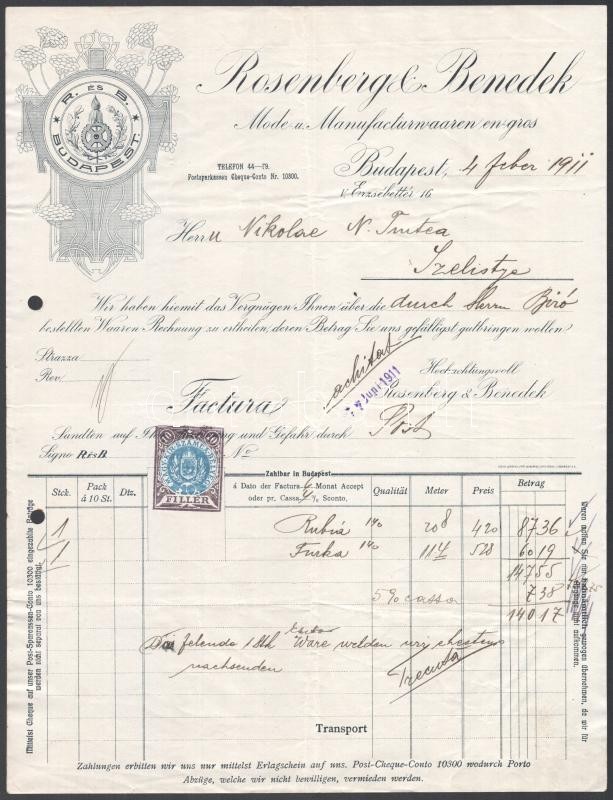 R. ÉS B.
BUDAPEST.
Rosenberg & Benedek
Mode u. Manufacturwaaren en gros
TELEFON 44—79.
Postsparkassen Cheque-Conto Nr. 10300.
Budapest, 4 feber 1911
V. Erzsébettér 16
Herrn Nikolae N.
Szelistye
Wir haben hiemit das Vergnügen Ihnen über die durch Herrn Biró
bestellten Waaren Rechnung zu ertheilen, deren Betrag Sie uns gefälligst gutbringen wollen.
Strazza
Rev.
Hochachtungsvoll
Rosenberg & Benedek
achitat
7 Juni 1911
Factura
Sandten auf und Gefahr durch Post
Signo R és B. No
10 10
FILLÉR
Zahlbar in Budapest
á Dato der Factura Monat Accept
oder pr. Cassa % Sconto.
Stck. Pack á 10 St. Dtz. Qualität Meter Preis Betrag
1 Rubiá 140 208 420 8736
1 Furka 140 114 528 6019
14755
5% cassa 738
14017
felende 1 Stk Ware welden wir
nachsenden
Trecuta
Transport
Mittelst Cheque auf unser Post-Sparcassen-Conto 10300 eingezahlte Beträge
werden nicht separat von uns bestätigt.
Waren wollen Sie nur gewogen übernehmen, da wir für
Abgänge nicht aufkommen.
Zahlungen erbitten wir uns nur mittelst Erlagschein auf uns. Post-Cheque-Conto 10300 wodurch Porto
Abzüge, welche wir nicht bewilligen, vermieden werden.